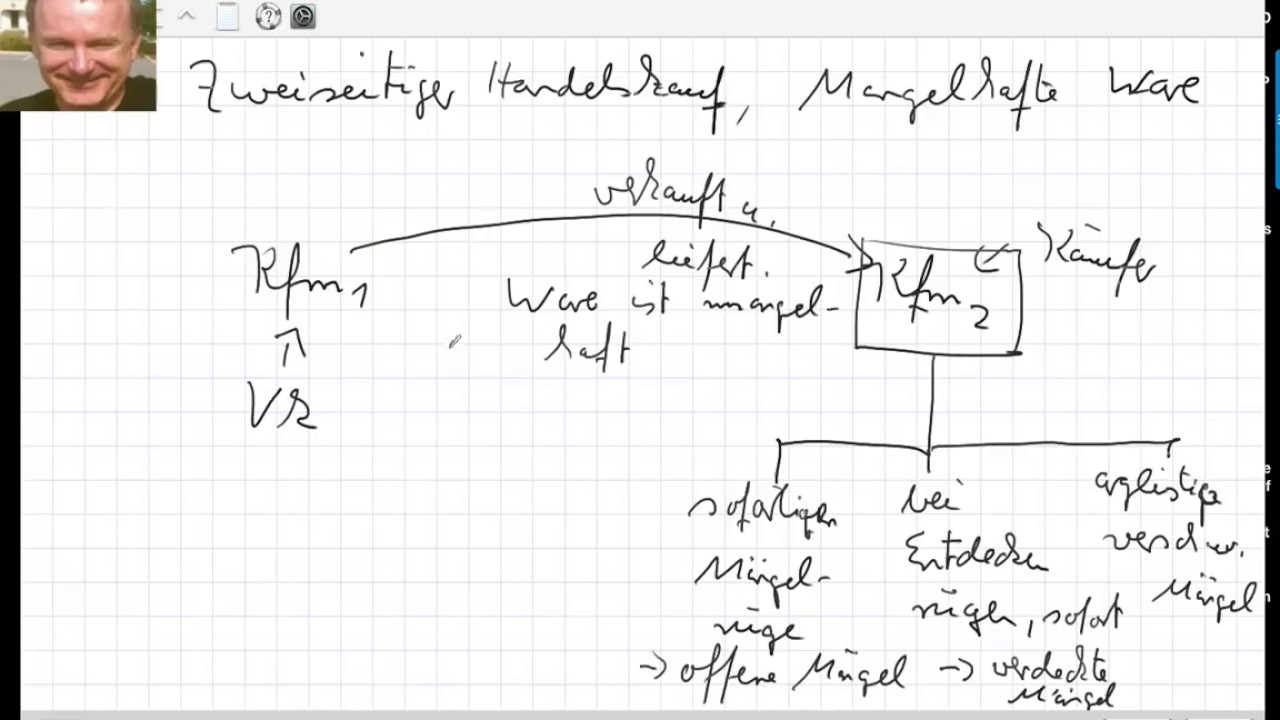 Zweiseitiger Handelskauf, Mangelhafte Ware
verkauft u.
liefert.
Ware ist mangel-
haft
Kfm 1
Vk
Kfm 2
Käufer
sofortigen
Mängel-
rüge
→ offene Mängel
bei
Entdecken
rügen, sofort
→ verdeckte
Mängel
arglistige
verschw.
Mängel